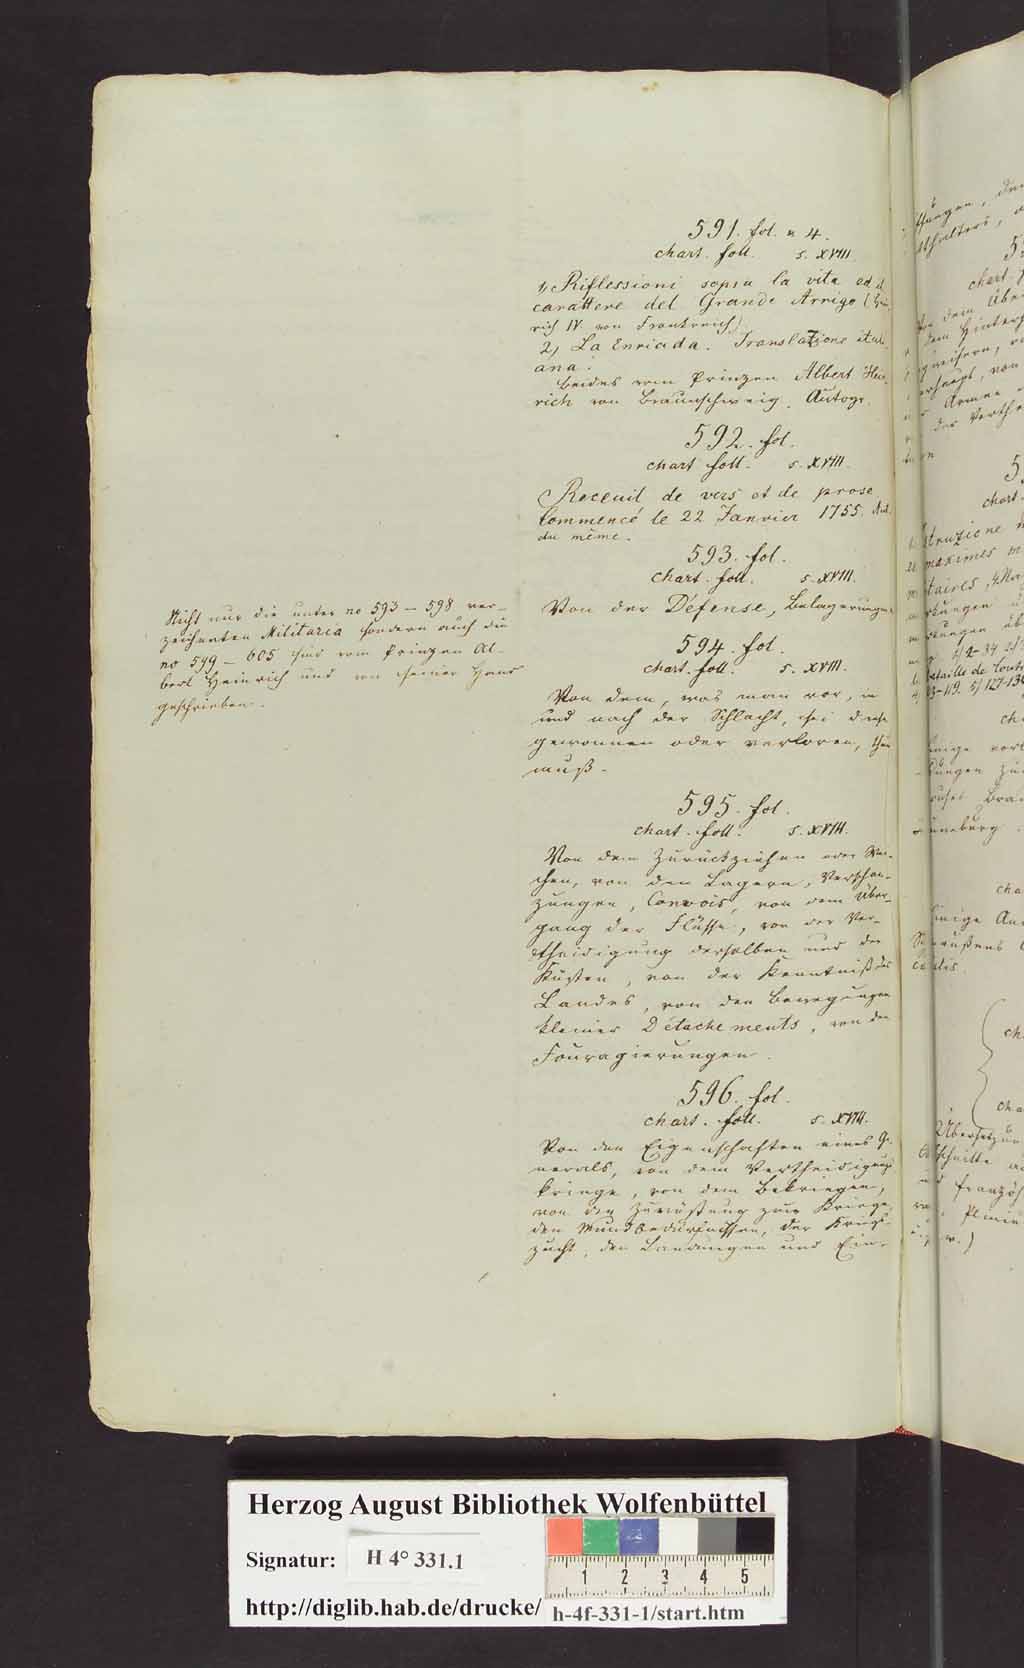 591. fol. u 4.
chart. foll. s. XVIII.
1, Riflessioni sopra la vita ed il
carattere del Grande Arrigo (Hein-
rich IV von Frankreich)
2, La Enriada. Translazione itali-
ana.
beides vom Prinzen Albert Hein-
rich von Braunschweig. Autogr.
592. fol.
chart foll. s. XVIII.
Receuil de vers et de prose
Commencé le 22 Janvier 1755. Aut.
du même.
593. fol.
chart. foll. s. XVIII.
Von der Défense, Belagerungen
Nicht nur die unter no 593 – 598 ver-
zeichneten Militaria sondern auch die
no 599 – 605 sind vom Prinzen Al-
bert Heinrich und von seiner Hand
geschrieben.
594. fol.
chart. foll. s. XVIII.
Von dem, was man vor, in
und nach der Schlacht, sei diese
gewonnen oder verloren, thun
muß.
595. fol.
chart. foll. s. XVIII.
Von dem Zurückziehen oder
chen, von den Lagern, Verschan-
zungen, Convois, von dem Über-
gang der Flüsse, von der Ver-
theidigung derselben und der
Küsten, von der Kenntniß des
Landes, von den Bewegungen
kleiner Détachements, von den
Fouragierungen.
596. fol.
chart. foll. s. XVIII.
Von den Eigenschaften eines Ge-
nerals, von dem Vertheidigungs
kriege, von dem Bekriegen,
von der Zurüstung zum Kriege
den Mundbedürfnissen, der Kriegs
zucht, den Landungen und Ein-
Herzog August Bibliothek Wolfenbüttel
Signatur: H 4° 331.1
1 2 3 4 5
http://diglib.hab.de/drucke/ h-4f-331-1/start.htm